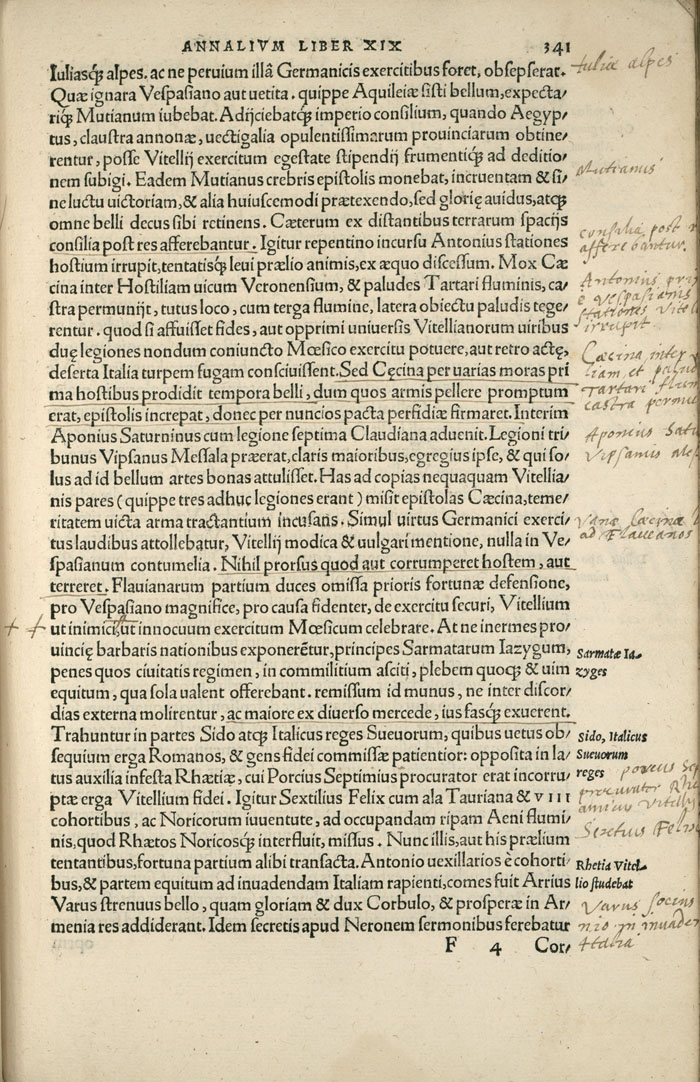 ANNALIVM LIBER XIX 341
Iuliasq́; alpes. ac ne peruium illâ Germanicis exercitibus foret, obsepserat.
Quæ ignara Vespasiano aut uetita. quippe Aquileiæ sisti bellum, expecta/
riq́; Mutianum iubebat. Adijciebatq́; imperio consilium, quando Aegyp/
tus, claustra annonæ, uectigalia opulentissimarum prouinciarum obtine/
rentur, posse Vitellij exercitum egestate stipendij frumentiq́; ad deditio/
nem subigi. Eadem Mutianus crebris epistolis monebat, incruentam & si/
ne luctu uictoriam, & alia huiuscemodi prætexendo, sed glorię auidus, atq́;
omne belli decus sibi retinens. Cæterum ex distantibus terrarum spacijs
consilia post res afferebantur. Igitur repentino incursu Antonius stationes
hostium irrupit, tentatisq́; leui prælio animis, ex æquo discessum. Mox Cæ
cina inter Hostiliam uicum Veronensium, & paludes Tartari fluminis, ca/
stra permunijt, tutus loco, cum terga flumine, latera obiectu paludis tege/
rentur. quod si affuisset fides, aut opprimi uniuersis Vitellianorum uiribus
duę legiones nondum coniuncto Mœsico exercitu potuere, aut retro actę,
deserta Italia turpem fugam consciuissent. Sed Cęcina per uarias moras pri
ma hostibus prodidit tempora belli, dum quos armis pellere promptum
erat, epistolis increpat, donec per nuncios pacta perfidiæ firmaret. Interim
Aponius Saturninus cum legione septima Claudiana aduenit. Legioni tri/
bunus Vipsanus Messala præerat, claris maioribus, egregius ipse, & qui so/
lus ad id bellum artes bonas attulisset. Has ad copias nequaquam Vitellia/
nis pares (quippe tres adhuc legiones erant) misit epistolas Cæcina, teme/
ritatem uicta arma tractantium incusans. Simul uirtus Germanici exerci/
tus laudibus attollebatur, Vitellij modica & uulgari mentione, nulla in Ve/
spasianum contumelia. Nihil prorsus quod aut corrumperet hostem, aut
terreret. Flauianarum partium duces omissa prioris fortunæ defensione,
pro Vespasiano magnifice, pro causa fidenter, de exercitu securi, Vitellium
ut inimici, ut innocuum exercitum Mœsicum celebrare. At ne inermes pro/
uincię barbaris nationibus exponerẽtur, principes Sarmatarum Iazygum,
penes quos ciuitatis regimen, in commilitium asciti, plebem quoq́; & uim
equitum, qua sola ualent offerebant. remissum id munus, ne inter discor/
dias externa molirentur, ac maiore ex diuerso mercede, ius fasq́; exuerent.
Trahuntur in partes Sido atq́; Italicus reges Sueuorum, quibus uetus ob/
sequium erga Romanos, & gens fidei commissæ patientior: opposita in la/
tus auxilia infesta Rhætiæ, cui Porcius Septimius procurator erat incorru/
ptæ erga Vitellium fidei. Igitur Sextilius Felix cum ala Tauriana & VIII
cohortibus, ac Noricorum iuuentute, ad occupandam ripam Aeni flumi/
nis, quod Rhætos Noricosq́; interfluit, missus. Nunc illis, aut his prælium
tentantibus, fortuna partium alibi transacta. Antonio uexillarios è cohorti/
bus, & partem equitum ad inuadendam Italiam rapienti, comes fuit Arrius
Varus strenuus bello, quam gloriam & dux Corbulo, & prosperæ in Ar/
menia res addiderant. Idem secretis apud Neronem sermonibus ferebatur
F 4 Cor/
Iuliæ alpes
Mutianus
consilia post r
afferebantur.
Antonius pri
Vespasianis
stationes Vite
irrupit
Cæcina inter
liam et palud
Tartari flum
castra permu
Aponius Satu
Vipsanus Me
Vana Cæcinæ
ad Flauianos
Sarmatæ Ia/
zyges
Sido, Italicus
Sueuorum
reges
porcius Sep
procurator Rhe
amicus Vitellij
Sextus Felix
Rhetia Vitel/
lio studebat
Varus socius
nio in inuaden
Italia